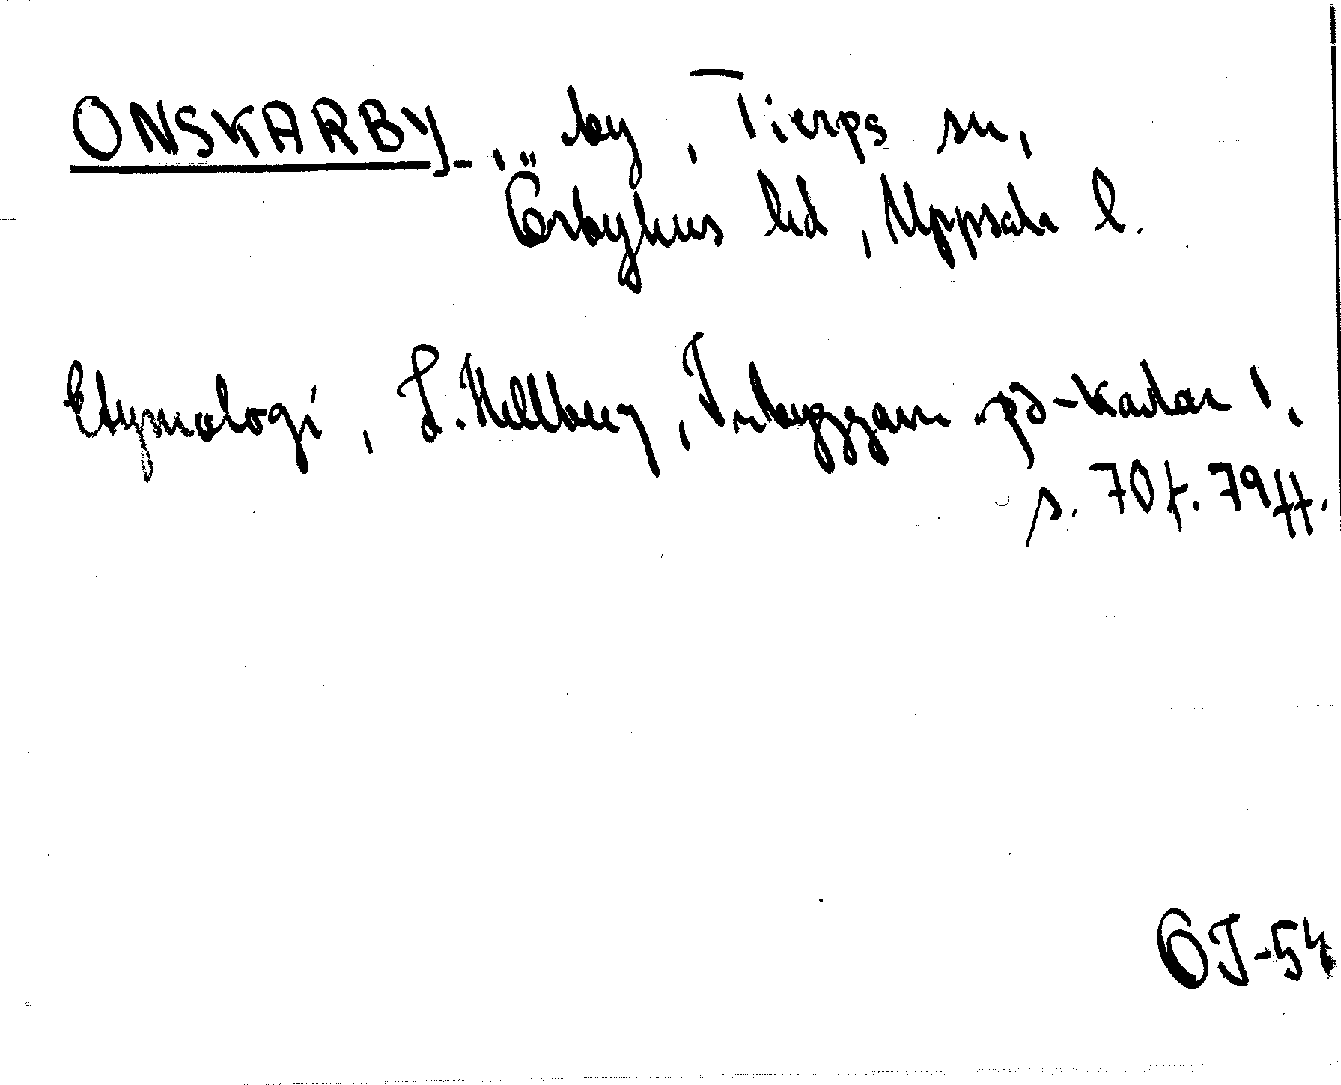 ONSKARBY, by, Tierps sn,
Örbyhus hd, Uppsala l.
Etymologi, L. Hellberg, Inbyggarn. på -karlar 1,
s. 70f. 79ff.
OJ-54